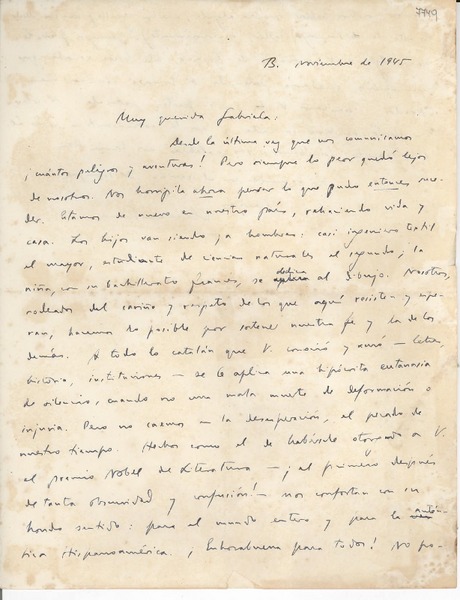 7749
B. noviembre de 1945
Muy querida Gabriela:
Desde la última vez que nos comunicamos
¡cuántos peligros y aventuras! Pero siempre lo peor quedó lejos
de nosotros. Nos horripila ahora pensar lo que pudo entonces suce-
der. Estamos de nuevo en nuestro país, rehaciendo vida y
casa. Los hijos van siendo ya hombres: casi ingeniero textil
el mayor, estudiante de ciencias naturales el segundo; la
niña, con su bachillerato francés, se dedica al dibujo. Nosotros,
rodeados del cariño y respeto de los que aquí resisten y espe-
ran, hacemos lo posible por sostener nuestra fe y la de los
demás. A todo lo catalán que V. conoció y amó — letras,
historia, instituciones — se le aplica una hipócrita eutanasia
de silencio, cuando no una mala muerte de deformación o
injuria. Pero no caemos en la desesperación, el pecado de
nuestro tiempo. Hechos como el de habérsele otorgado a V.
el premio Nobel de Literatura — ¡al primero después
de tanta obscuridad y confusión! — nos confortan con su
hondo sentido: para el mundo entero y para la autén-
tica Hispanoamérica. ¡Enhorabuena para todos! No po-